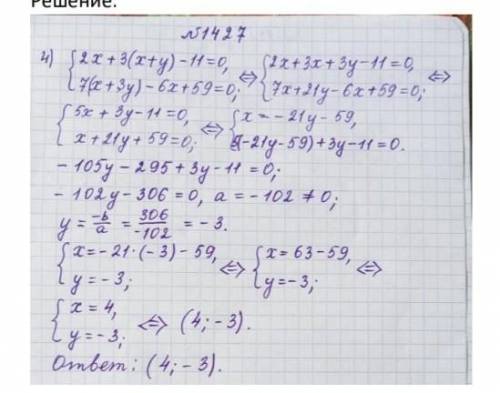 Решение:
№1427
4) { 2x+3(x+y)-11=0, ⇔ { 2x+3x+3y-11=0, ⇔
7(x+3y)-6x+59=0; 7x+21y-6x+59=0;
{ 5x+3y-11=0, ⇔ { x=-21y-59,
x+21y+59=0; 5(-21y-59)+3y-11=0.
-105y-295+3y-11=0;
-102y-306=0, a=-102≠0;
y = -b/a = 306/-102 = -3.
{ x=-21·(-3)-59, ⇔ { x=63-59, ⇔
y=-3; y=-3;
{ x=4, ⇔ (4;-3).
y=-3;
Ответ: (4;-3).